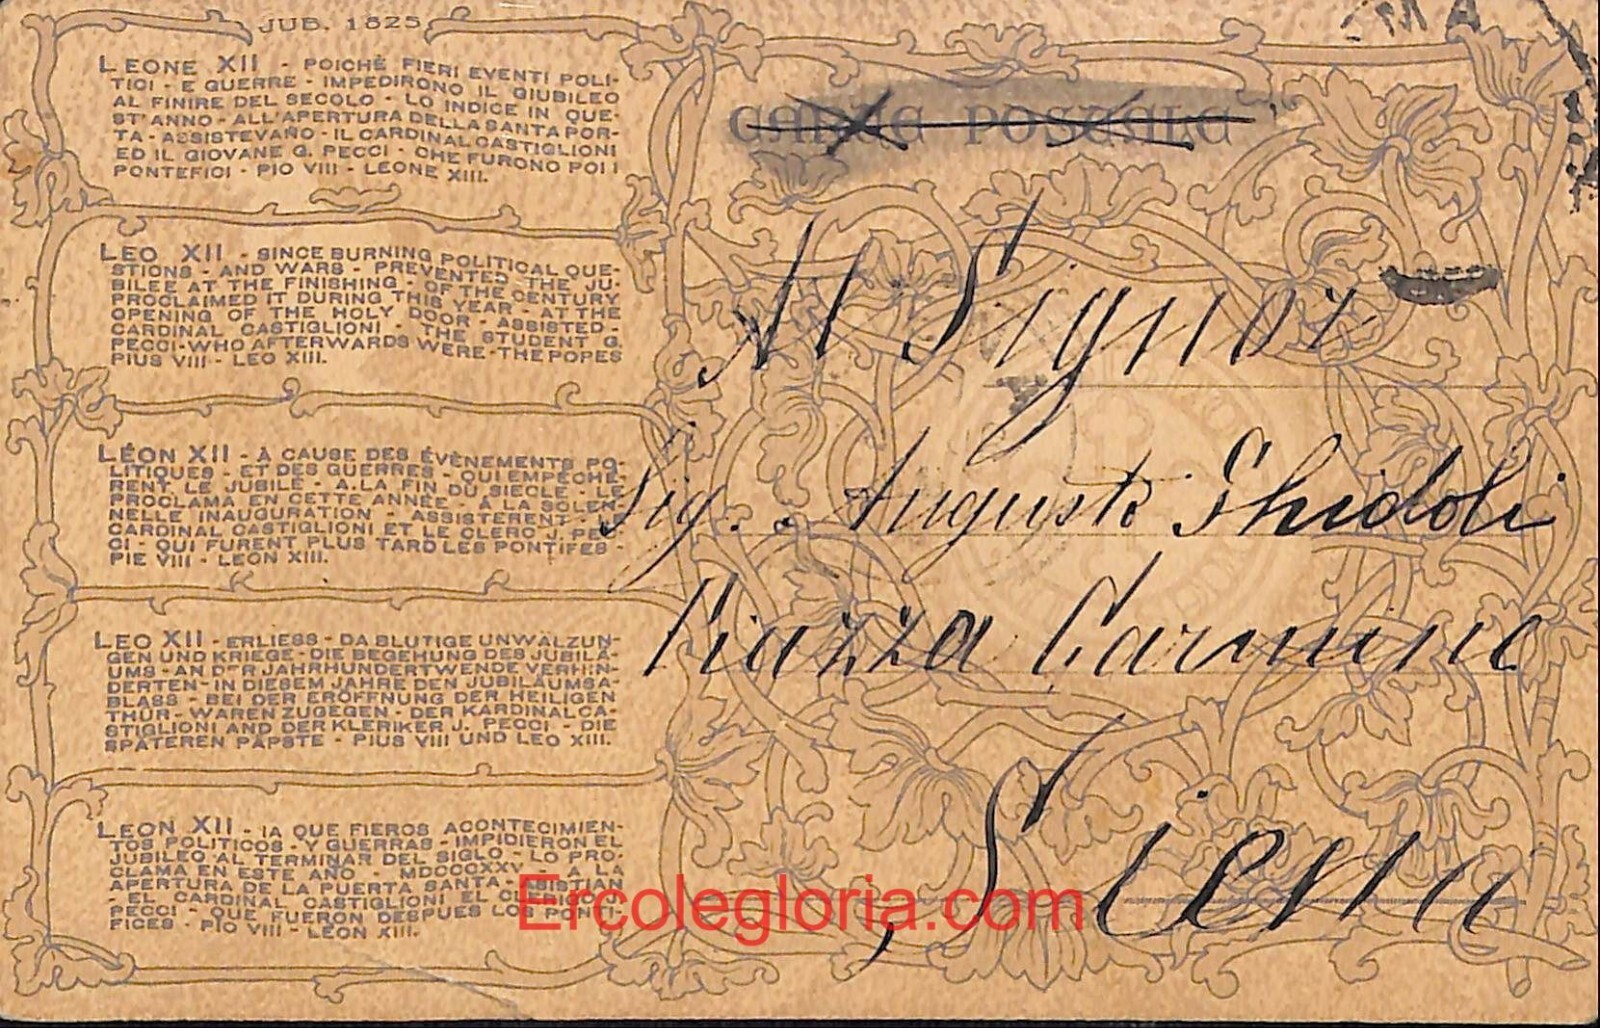 JUB. 1825
LEONE XII - POICHÈ FIERI EVENTI POLI-
TICI - E GUERRE - IMPEDIRONO IL GIUBILEO
AL FINIRE DEL SECOLO - LO INDICE IN QUE-
ST'ANNO - ALL'APERTURA DELLA SANTA POR-
TA - ASSISTEVANO - IL CARDINAL CASTIGLIONI
ED IL GIOVANE G. PECCI - CHE FURONO POI I
PONTEFICI - PIO VIII - LEONE XIII.
LEO XII - SINCE BURNING POLITICAL QUE-
STIONS - AND WARS - PREVENTED THE JU-
BILEE AT THE FINISHING - OF THE CENTURY
PROCLAIMED IT DURING THIS YEAR - AT THE
OPENING OF THE HOLY DOOR - ASSISTED -
CARDINAL CASTIGLIONI - THE STUDENT G.
PECCI - WHO AFTERWARDS WERE - THE POPES
PIUS VIII - LEO XIII.
LÉON XII - À CAUSE DES ÉVÈNEMENTS PO-
LITIQUES - ET DES GUERRES - QUI EMPÊCHÈ-
RENT LE JUBILÉ - A LA FIN DU SIÈCLE - LE
PROCLAMA EN CETTE ANNÉE - À LA SOLEN-
NELLE INAUGURATION - ASSISTÈRENT - LE
CARDINAL CASTIGLIONI ET LE CLERC J. PEC-
CI - QUI FURENT PLUS TARD LES PONTIFES -
PIE VIII - LEON XIII.
LEO XII - ERLIESS - DA BLUTIGE UNWÄLZUN-
GEN UND KRIEGE - DIE BEGEHUNG DES JUBILÄ-
UMS - AN DER JAHRHUNDERTWENDE VERHIN-
DERTEN - IN DIESEM JAHRE DEN JUBILÄUMSA-
BLASS - BEI DER ERÖFFNUNG DER HEILIGEN
THÜR - WAREN ZUGEGEN - DER KARDINAL CA-
STIGLIONI AND DER KLERIKER J. PECCI - DIE
SPÄTEREN PÄPSTE - PIUS VIII UND LEO XIII.
LEON XII - IA QUE FIEROS ACONTECIMIEN-
TOS POLITICOS - Y GUERRAS - IMPIDIERON EL
JUBILEO AL TERMINAR DEL SIGLO - LO PRO-
CLAMA EN ESTE AÑO - MDCCCXXV - A LA
APERTURA DE LA PUERTA SANTA - ASISTIAN
- EL CARDINAL CASTIGLIONI EL CLERIGO J.
PECCI - QUE FUERON DESPUES LOS PONTI-
FICES - PIO VIII - LEON XIII.
CARTE POSTALE
Al Signor
Sig. Augusto Ghidoli
Piazza Carmine
Siena
Ercolegloria.com